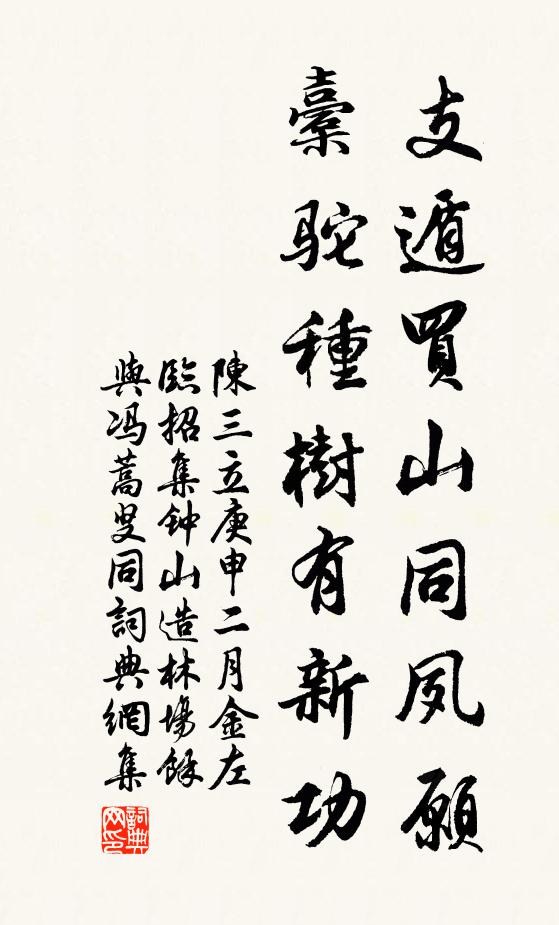 支遁買山同夙願
橐駝種樹有新功
陳三立庚申二月金左
臨招集钟山造林場餘
與冯蒿叟同詞典網集
詞典網印